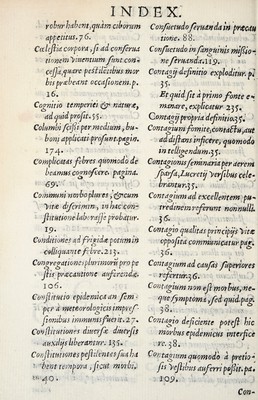 INDEX.
robur habent, quàm ciborum
appetitus. 76.
Cœlestia corpora, si ad conserua
tionem viuentium sunt con-
cessa, quare pestilẽtibus mor
bis præbeant occasionem. p.
16.
Cognitio temperiei & naturæ,
ad quid prosit. 55.
Columbo scissi per medium, bu-
boni applicati prosunt. pagin.
174.
Complicatas febres quomodo de
beamus cognoscere. pagina.
69.
Communi morbo plures, & cum
vitæ discrimine, in hac con-
stitutione laborasse probatur.
19.
Conditiones ad frigidæ potum in
colliquante febre. 213.
Congregationes plurimũ pro pe
stis præcautione auferendæ.
106.
Constitutio epidemica an sem-
per à meteorologicis impres-
sionibus immunis fuerit. 27.
Constitutiones diuersæ diuersis
auxilijs liberantur. 135.
Constitutiones pestilentes sua ha
bent tempora, sicut morbi.
40.
Consuetudo seruanda in præcau
tione. 88.
Consuetudo in sanguinis missio-
ne seruanda. 119.
Contagij definitio exploditur. p.
35.
Et quid sit à primo fonte e-
manare, explicatur 235.
Contagij propria definitio. 35.
Contagium fomite, contactu, aut
ad distans inficere, quomodo
intelligendum. 35.
Contagionis seminaria per aerem
sparsa, Lucretij versibus cele-
brantur. 35.
Contagium ad excellentem pu-
tredinem referunt nonnulli.
36.
Contagio qualitas principijs vitæ
opposita communicatur pag.
36.
Contagium ad causas superiores
refertur. 36.
Contagium non est morbus, ne-
que symptoma, sed quid. pag.
38.
Contagio deficiente potest hic
morbus epidemicus interfice
re. 38.
Contagium quomodo à pretio-
sis vestibus auferri possit. pa.
109.
Con-